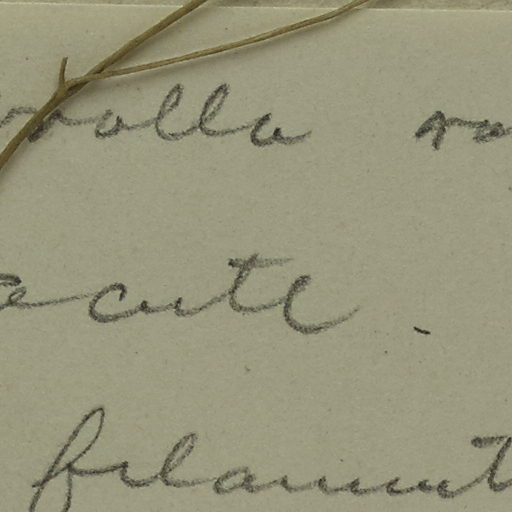 corolla
acute.
filament